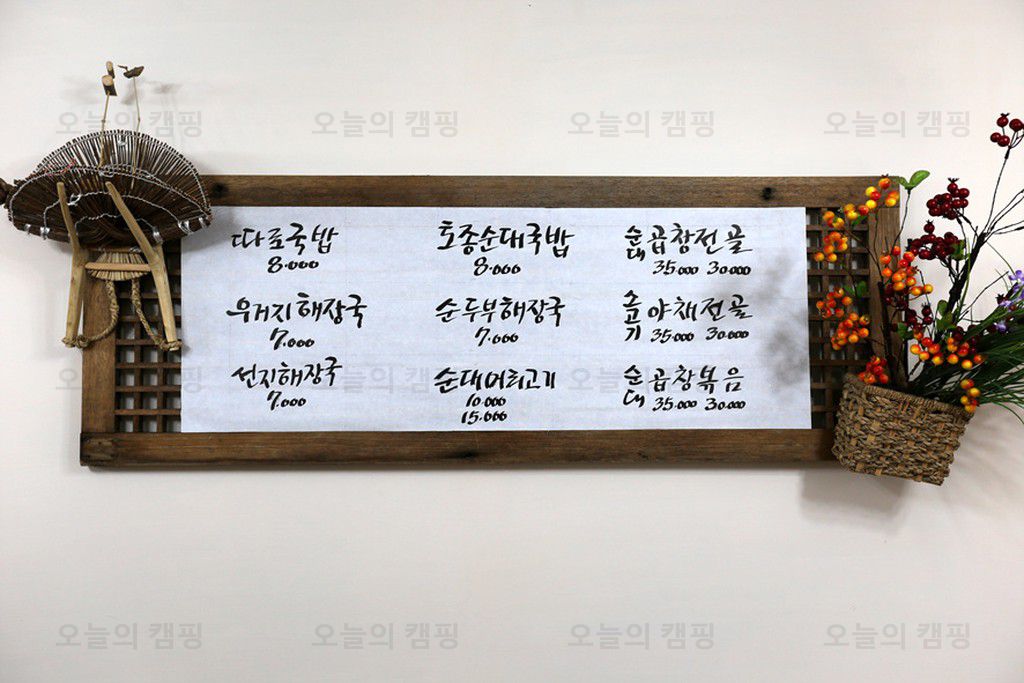 오늘의 캠핑 오늘의 캠핑 오늘의 캠핑 오늘의 캠핑
따로국밥
8.000
우거지해장국
7.000
선지해장국
7.000
토종순대국밥
8.000
순두부해장국
7.000
순대머리고기
10.000
15.000
순대곱창전골
35.000 30.000
소고기야채전골
35.000 30.000
순대곱창볶음
35.000 30.000
오늘의 캠핑 오늘의 캠핑 오늘의 캠핑 오늘의 캠핑